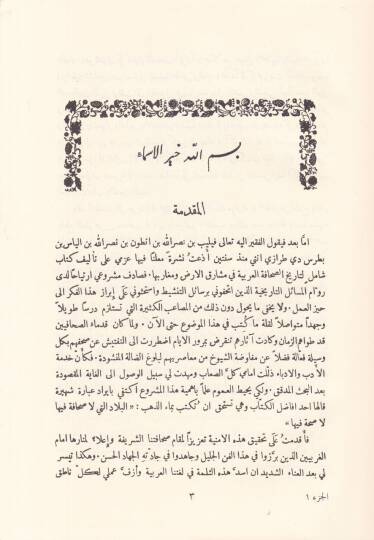 بسم الله خير الاسماء
المقدمة
امَّا بعد فيقول الفقير اليه تعالى فيليب بن نصرالله بن انطون بن نصرالله بن الياس بن
بطرس دي طرازي انني منذ سنتين أَذعتُ نشرةً معلنًا فيها عزمي على تأليف كتاب
شامل لتاريخ الصحافة العربية في مشارق الارض ومغاربها. فصادف مشروعي ارتياحًا لدى
روّام المسائل التاريخية الذين اتحفوني برسائل التنشيط واستحثوني عَلَى إِبراز هذا الفكر الى
حيز العمل. ولا يخفى ما يحول دون ذلك من المصاعب الكثيرة التي تستلزم درسًا طويلاً
وجهدًا متواصلاً لقلة ما كُتب في هذا الموضوع حتى الآن. ولما كان قدماء الصحافيين
قد طواهم الزمان وكادت آثارهم تنقرض بمرور الايام اضطررت الى التفتيش عن صحفهم بكل
وسيلة فعالة فضلاً عن مفاوضة الشيوخ من معاصريهم لبلوغ الضالة المنشودة. فكأن خدمة
الأدب والادباء ذلّلت امامي كلَّ الصعاب ومهدت لي سبيل الوصول الى الغاية المقصودة
بعد البحث المدقق. ولكي يحيط العموم علمًا باهمية هذا المشروع أكتفي بايراد عبارة شهيرة
قالها احد افاضل الكتَّاب وهي تستحق ان تُكتب بماء الذهب: «البلاد التي لا صحافة فيها
لا صحة فيها»
فأَقدمتُ عَلَى تحقيق هذه الامنية تعزيزًا لمقام صحافتنا الشريفة وإعلاءً لمنارها امام
الغربيين الذين برَّزوا في هذا الفن الجليل وجاهدوا في جادّتهِ الجهاد الحسن. وهكذا تيسر
لي بعد العناء الشديد ان اسدَّ هذه الثلمة في لغتنا العربية وأزفَّ عملي لكلّ ناطق
٣
الجزء ١